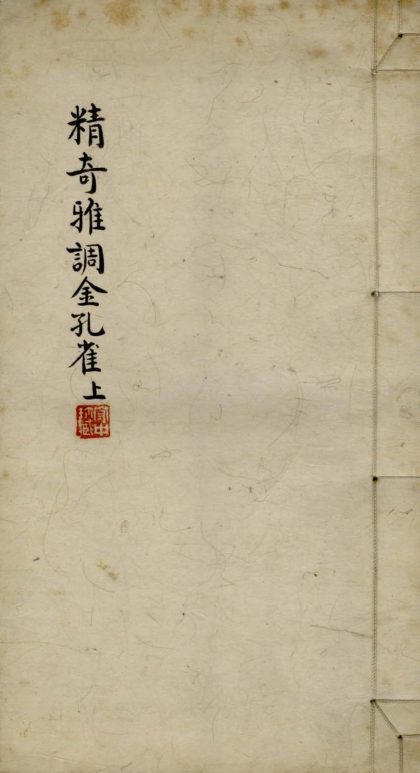 精奇雅調金孔雀上